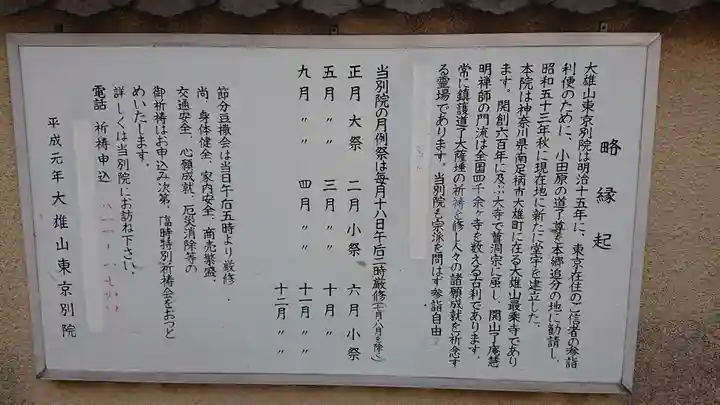 略縁起
大雄山東京別院は明治十五年に、東京在住のご信者の参詣
利便のために、小田原の道了尊を本郷追分の地に勧請し、
昭和五十三年秋に現在地に新たに堂宇を建立した、
本院は神奈川県南足柄市大雄町に在る大雄山最乗寺であり
ます。開創六百年に及ぶ大寺で曹洞宗に属し、開山了庵慧
明禅師の門流は全国四千余ヶ寺を数える古刹であります。
常に鎮護道了大薩埵の祈祷を修し人々の諸願成就を祈念す
る霊場であります。当別院も宗派を問はず参詣自由
当別院の月例祭は毎月十八日午后二時厳修(一月八月を除く)
正月 大祭 二月 小祭 六月 小祭
五月 〃〃 三月 〃〃 十月 〃〃
九月 〃〃 四月 〃〃 十一月 〃〃
十二月 〃〃
節分豆撒会は当日午后五時より厳修.
尚、身体健全、家内安全、商売繁盛、
交通安全、心願成就、厄災消除等の
御祈祷はお申込み次第、臨時特別祈祷会をおつと
めいたします。
詳しくは当別院にお訪ね下さい。
電話 祈祷申込
平成元年 大雄山東京別院